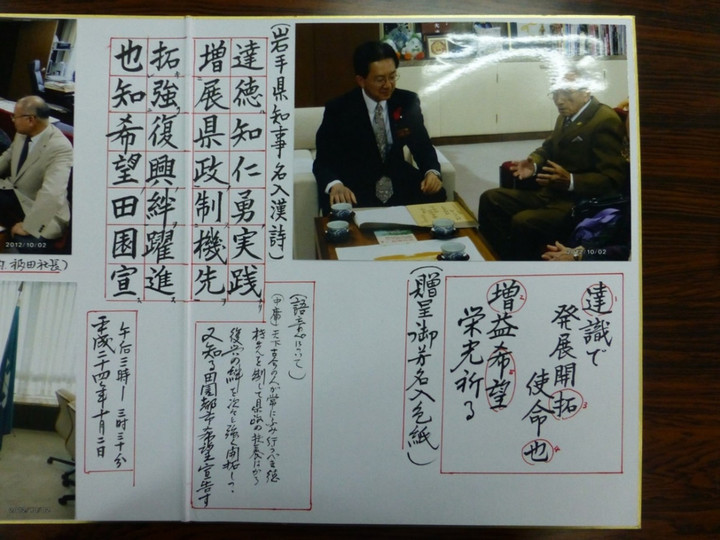 2012/10/02
2012/10/02
(岩手県知事名入漢詩)
達徳知仁勇実践
増展県政制機先
拓強復興絆躍進
也知希望田園宣
達識で
発展開拓
使命也
増益希望
栄光祈る
(贈呈御芳名入色紙)
(語意について)
(中庸)天下古今の人が常にふみ行うべき徳
機先を制して県政の発展はかる
復興の絆を次々と強く開拓しつ
又知る田園都市希望宣告す
午后三時ー三時三十分
平成二十四年十月二日
稲田社長)